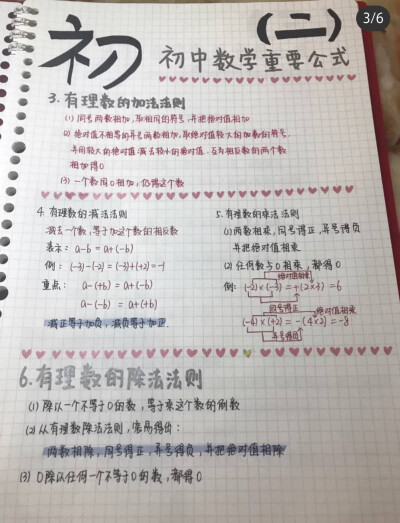 3/6
初 (二)
初中数学重要公式
3. 有理数的加法法则
(1) 同号两数相加,取相同的符号,并把绝对值相加
(2) 绝对值不相等的异号两数相加,取绝对值较大的加数的符号.
并用较大的绝对值减去较小的绝对值.互为相反数的两个数
相加得0
(3) 一个数同0相加,仍得这个数
4. 有理数的减法法则
减去一个数,等于加这个数的相反数
表示: a-b = a+(-b)
例: (-3)-(-2) = (-3)+(+2) = -1
重点: a-(+b) = a+(-b)
a-(-b) = a+(+b)
减正等于加负,减负等于加正.
5. 有理数的乘法法则
(1) 两数相乘,同号得正,异号得负
并把绝对值相乘
(2) 任何数与0相乘,都得0
绝对值相乘
例: (-2)×(-3) = +(2×3) = 6
同号得正
绝对值相乘
(-4)×(+2) = -(4×2) = -8
异号得负
6. 有理数的除法法则
(1) 除以一个不等于0的数,等于乘这个数的倒数
(2) 从有理数除法法则,容易得价:
两数相除,同号得正,异号得负,并把绝对值相除
(3) 0除以任何一个不等于0的数,都得0